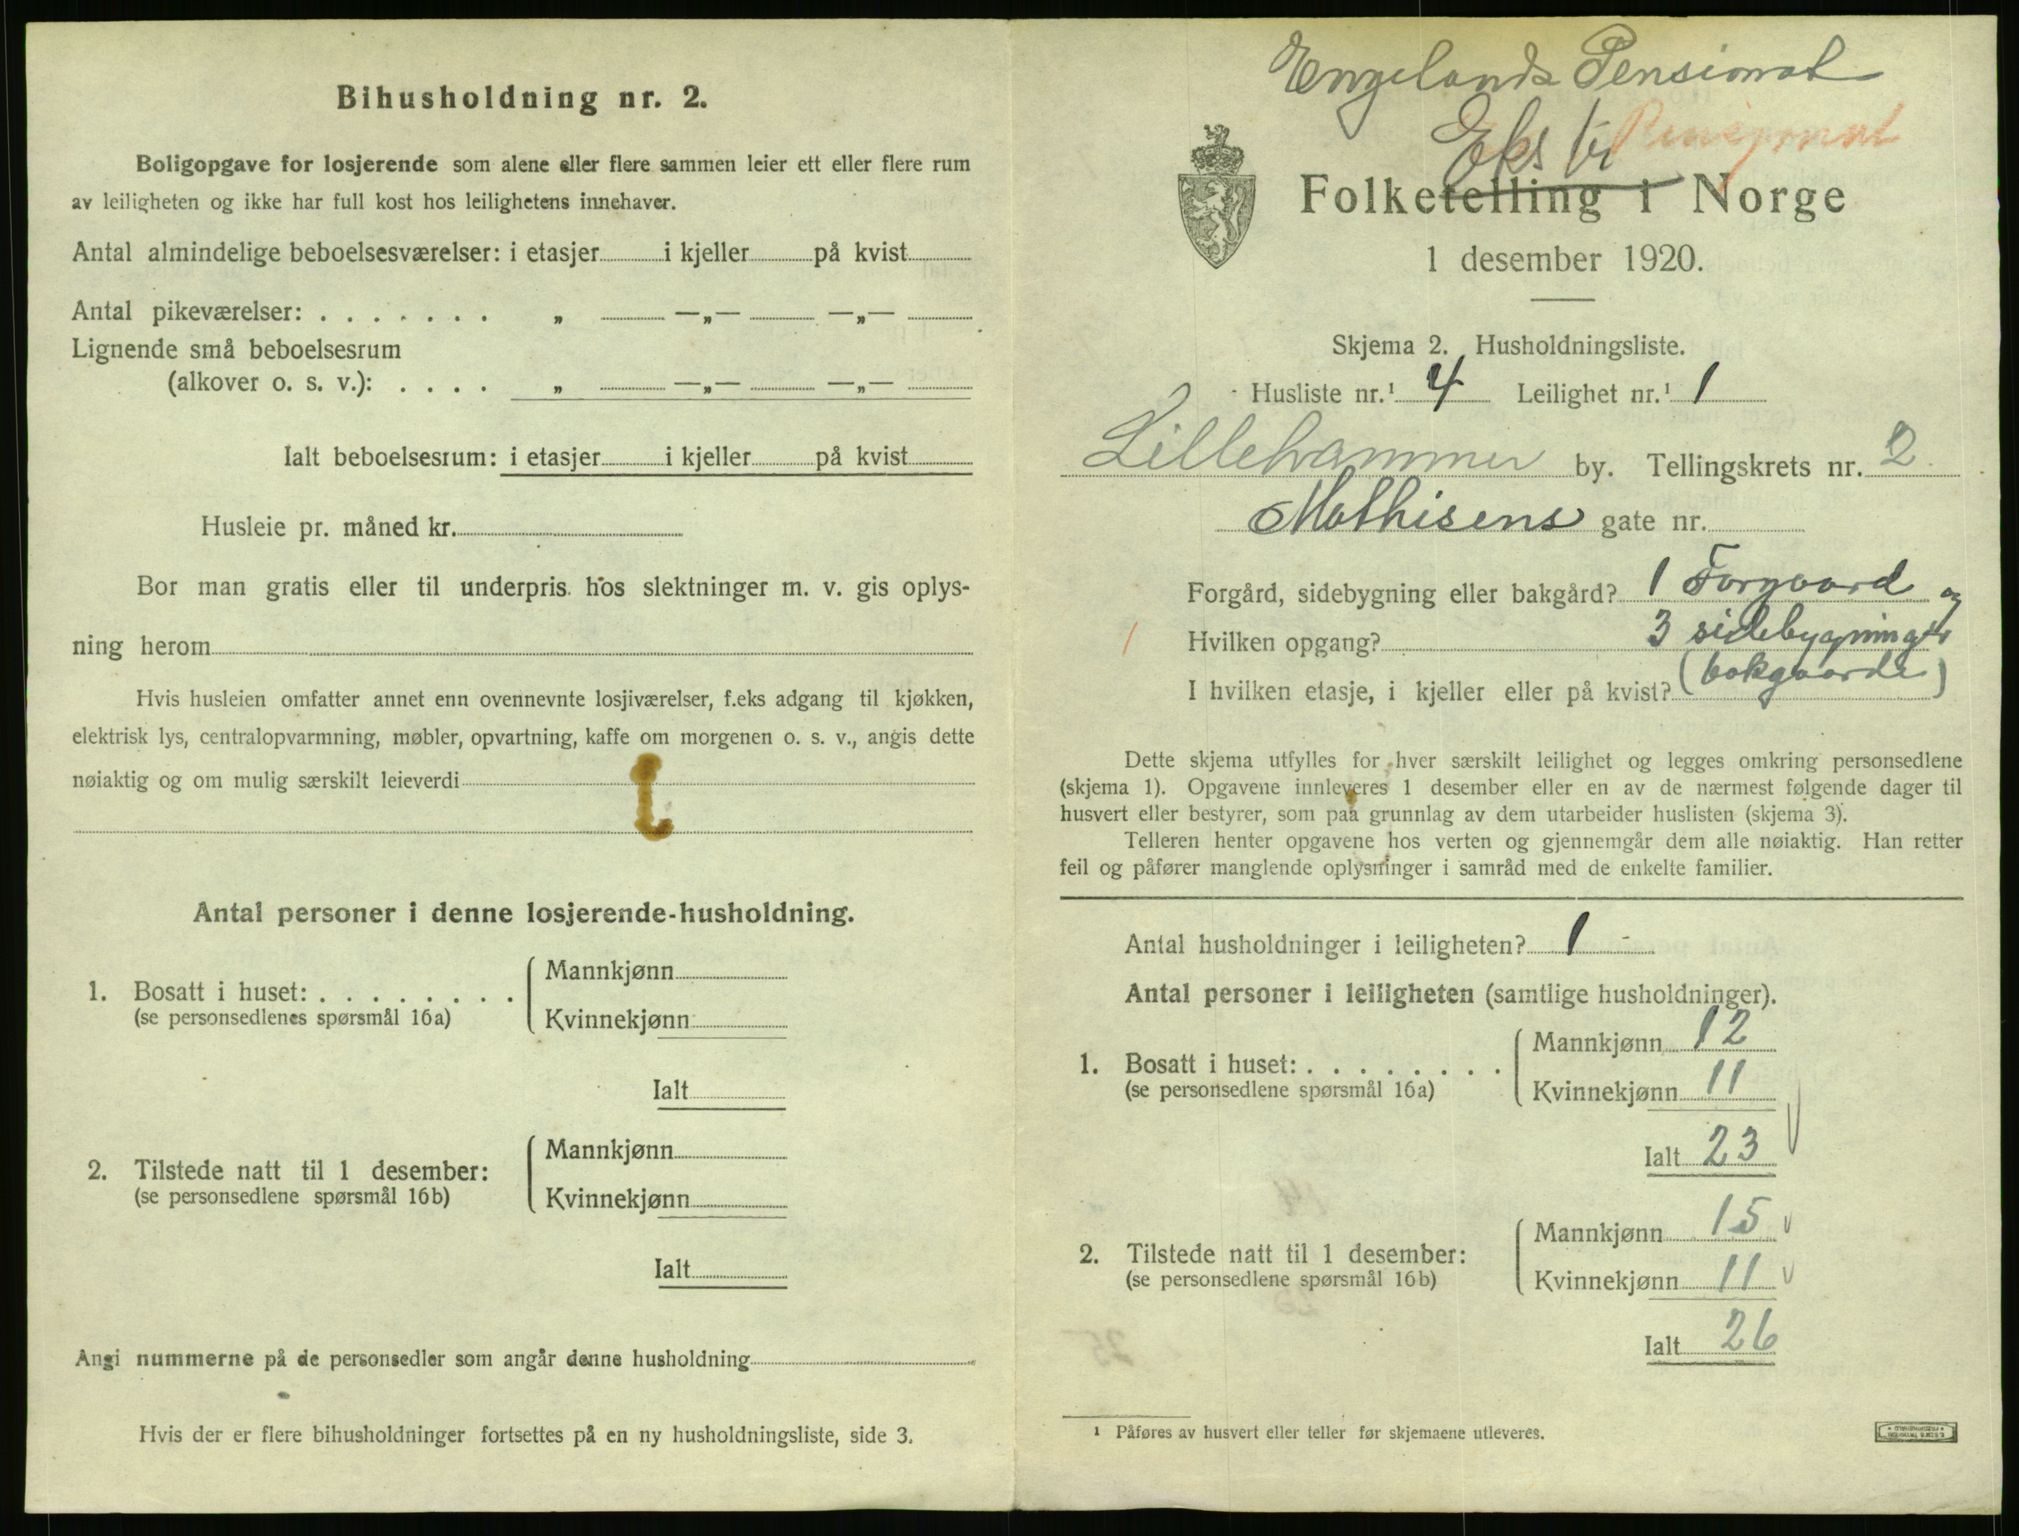 Bihusholdning nr. 2.
Boligopgave for losjerende som alene eller flere sammen leier ett eller flere rum
av leiligheten og ikke har full kost hos leilighetens innehaver.
Antal almindelige beboelsesværelser: i etasjer i kjeller på kvist
Antal pikeværelser: . . . . . . . „ —„— —„—
Lignende små beboelsesrum
(alkover o. s. v.): . . . . „ —„— —„—
Ialt beboelsesrum: i etasjer i kjeller på kvist
Husleie pr. måned kr.
Bor man gratis eller til underpris hos slektninger m. v. gis oplys-
ning herom
Hvis husleien omfatter annet enn ovennevnte losjiværelser, f.eks adgang til kjøkken,
elektrisk lys, centralopvarmning, møbler, opvartning, kaffe om morgenen o. s. v., angis dette
nøiaktig og om mulig særskilt leieverdi
Antal personer i denne losjerende-husholdning.
1. Bosatt i huset: . . . . . . . . Mannkjønn
(se personsedlenes spørsmål 16a) Kvinnekjønn
Ialt
2. Tilstede natt til 1 desember: Mannkjønn
(se personsedlene spørsmål 16b) Kvinnekjønn
Ialt
Angi nummerne på de personsedler som angår denne husholdning
Hvis der er flere bihusholdninger fortsettes på en ny husholdningsliste, side 3.
Engelands Pensionat
Eks
Folketelling i Norge
1 desember 1920.
Skjema 2. Husholdningsliste.
Husliste nr.¹ 4 Leilighet nr.¹ 1
Lillehammer by. Tellingskrets nr. 2
Mathisens gate nr.
Forgård, sidebygning eller bakgård? 1 Forgaard og
1 Hvilken opgang? 3 sidebygninger
I hvilken etasje, i kjeller eller på kvist? (bakgaarde)
Dette skjema utfylles for hver særskilt leilighet og legges omkring personsedlene
(skjema 1). Opgavene innleveres 1 desember eller en av de nærmest følgende dager til
husvert eller bestyrer, som paa grunnlag av dem utarbeider huslisten (skjema 3).
Telleren henter opgavene hos verten og gjennemgår dem alle nøiaktig. Han retter
feil og påfører manglende oplysninger i samråd med de enkelte familier.
Antal husholdninger i leiligheten? 1
Antal personer i leiligheten (samtlige husholdninger).
1. Bosatt i huset: . . . . . . . . Mannkjønn 12
(se personsedlene spørsmål 16a) Kvinnekjønn 11
Ialt 23
2. Tilstede natt til 1 desember: Mannkjønn 15
(se personsedlene spørsmål 16b) Kvinnekjønn 11
Ialt 26
¹ Påføres av husvert eller teller før skjemaene utleveres.